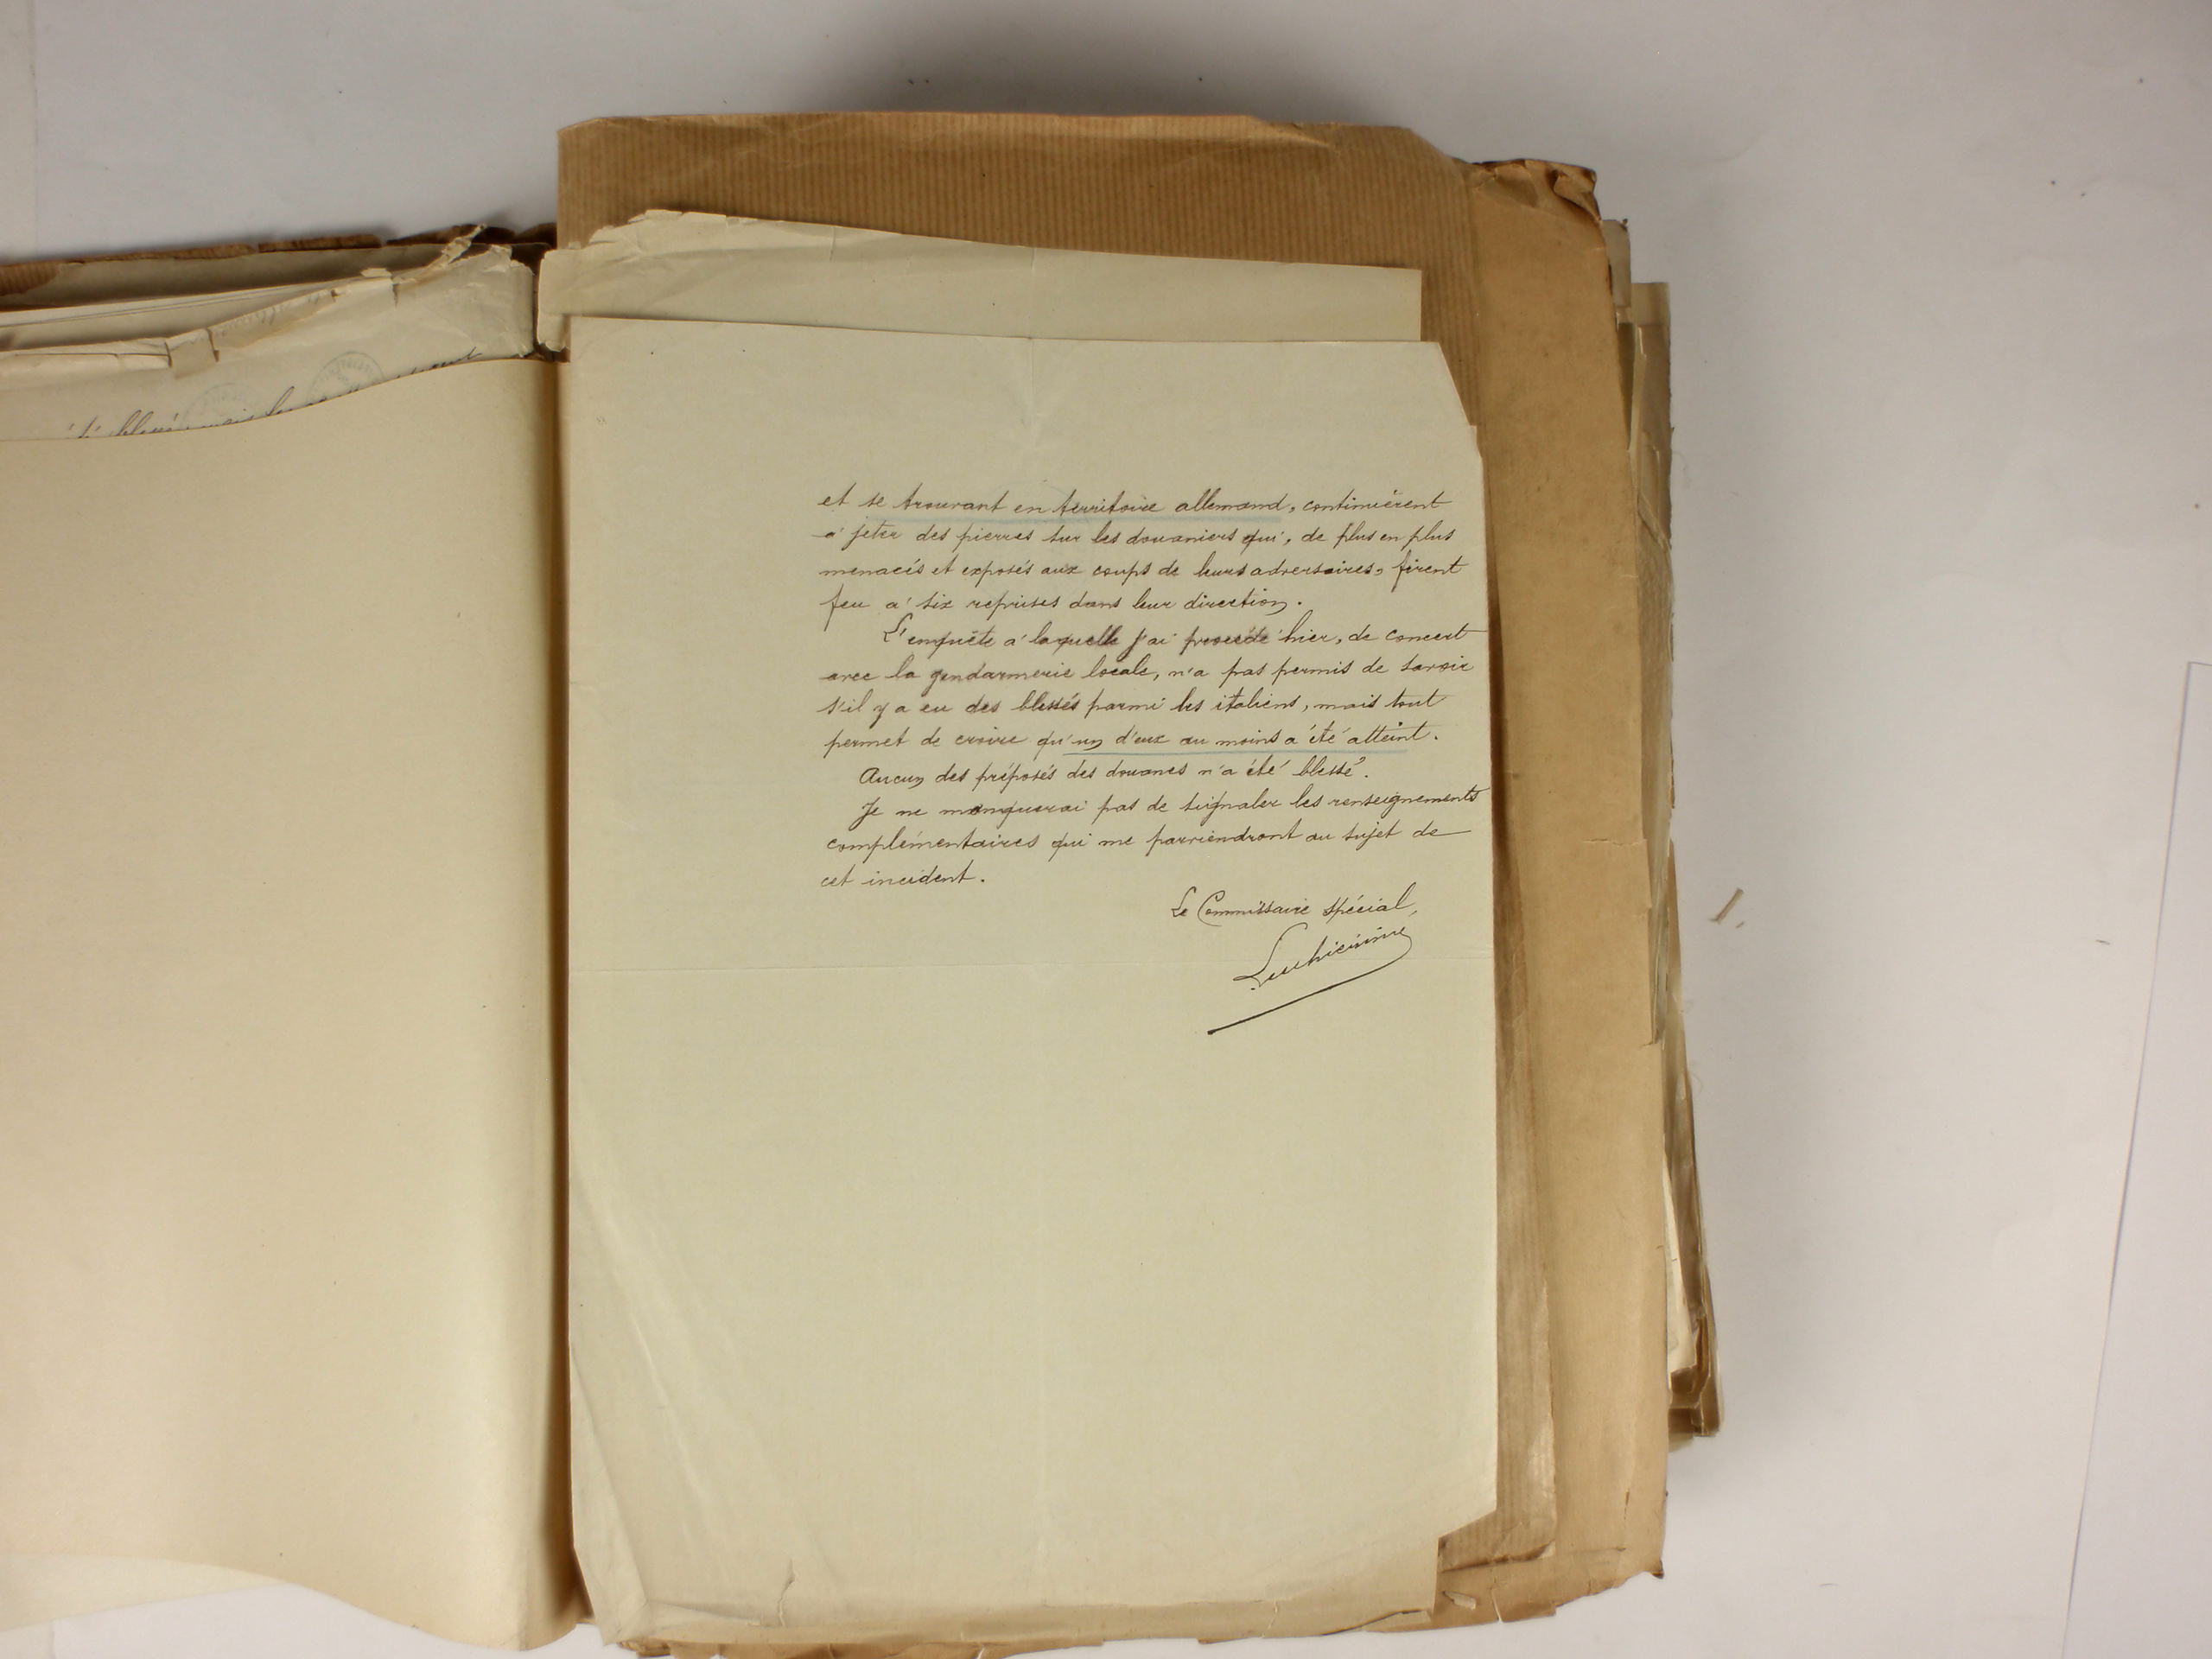 et se trouvant en territoire allemand, continuèrent
à jeter des pierres sur les douaniers qui, de plus en plus
menacés et exposés aux coups de leurs adversaires, firent
feu à six reprises dans leur direction.
L'enquête à laquelle j'ai procédé hier, de concert
avec la gendarmerie locale, n'a pas permis de savoir
s'il y a eu des blessés parmi les italiens, mais tout
permet de croire qu'un d'eux au moins a été atteint.
Aucun des préposés des douanes n'a été blessé.
Je ne manquerai pas de signaler les renseignements
complémentaires qui me parviendront au sujet de
cet incident.
Le Commissaire spécial,